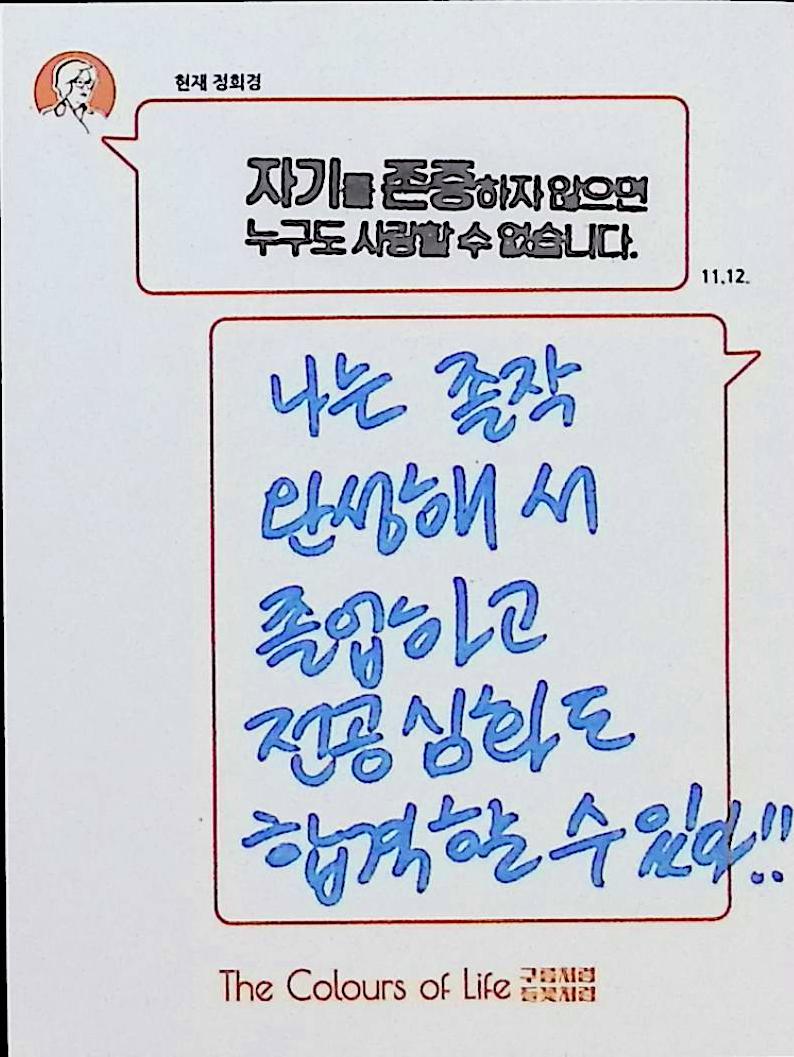 현재 정희경
자기를 존중하지 않으면
누구도 사랑할 수 없습니다.
11.12.
나는 졸작
완성해 서
졸업하고
전공심화도
합격할 수 있어!!
The Colours of Life 구름처럼
들꽃처럼